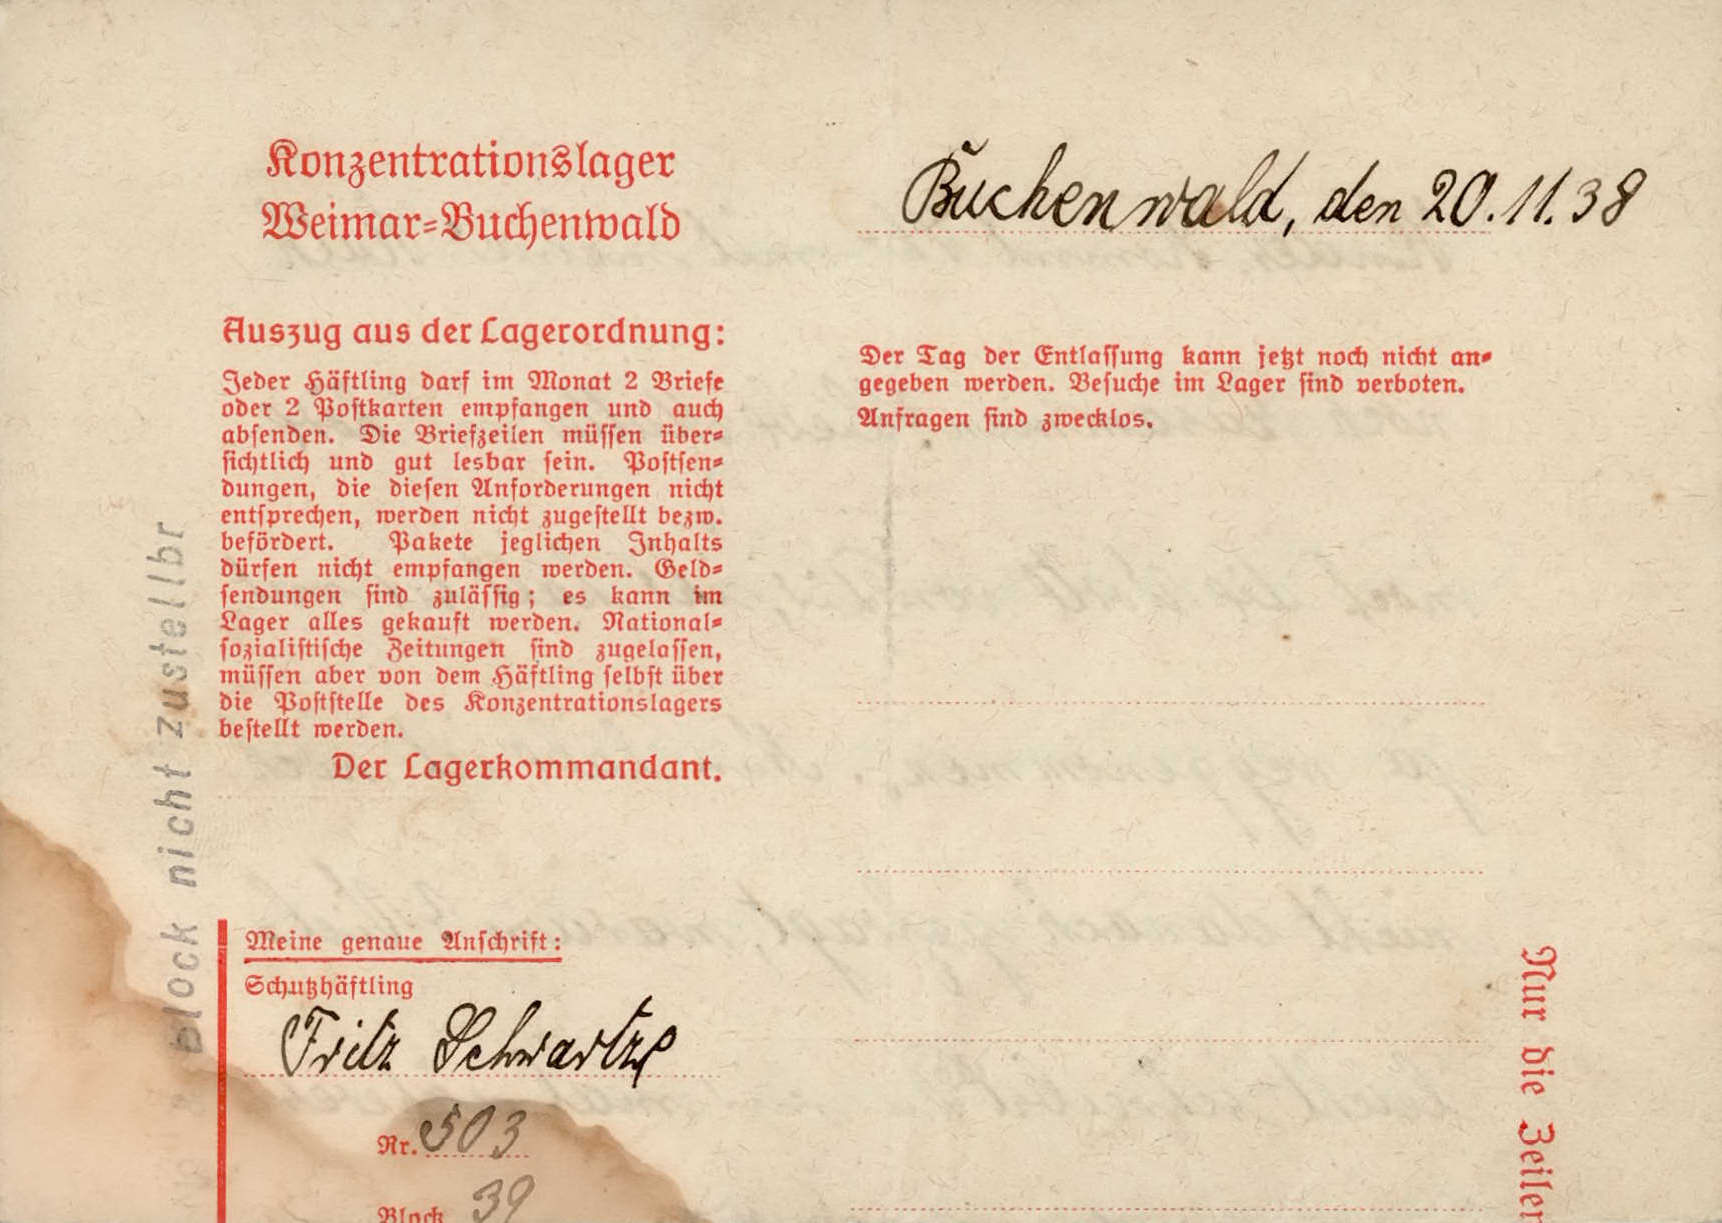 Konzentrationslager
Weimar-Buchenwald
Buchenwald, den 20.11.38
Auszug aus der Lagerordnung:
Jeder Häftling darf im Monat 2 Briefe
oder 2 Postkarten empfangen und auch
absenden. Die Briefzeilen müssen über-
sichtlich und gut lesbar sein. Postsen-
dungen, die diesen Anforderungen nicht
entsprechen, werden nicht zugestellt bezw.
befördert. Pakete jeglichen Inhalts
dürfen nicht empfangen werden. Geld-
sendungen sind zulässig; es kann im
Lager alles gekauft werden. National-
sozialistische Zeitungen sind zugelassen,
müssen aber von dem Häftling selbst über
die Poststelle des Konzentrationslagers
bestellt werden.
Der Lagerkommandant.
Der Tag der Entlassung kann jetzt noch nicht an-
gegeben werden. Besuche im Lager sind verboten.
Anfragen sind zwecklos.
Meine genaue Anschrift:
Schutzhäftling
Fritz Schwartz
Nr. 503
Block 39
block nicht zustellbr
Nur die Zeilen